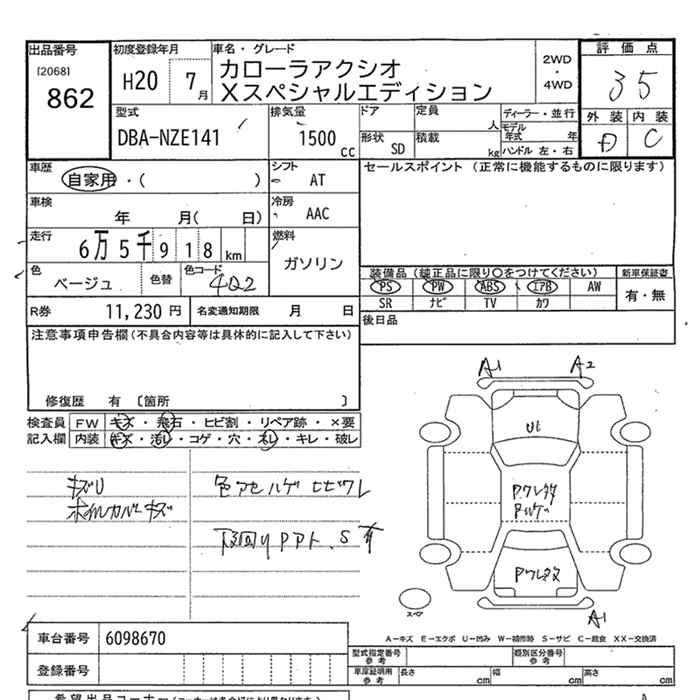 出品番号
[2068]
862
初度登録年月
H20 7月
車名・グレード
カローラアクシオ
Xスペシャルエディション
2WD
・
4WD
評価点
3 5
外装 内装
D C
型式
DBA-NZE141
排気量
1500 cc
ドア
定員
人
形状
SD
積載
kg
ディーラー・並行
モデル年式 年
ハンドル 左・右
車歴
自家用・( )
シフト
AT
セールスポイント (正常に機能するものに限ります)
車検
年 月( 日)
冷房
AAC
走行
6万5千918km
燃料
ガソリン
色
ベージュ
色替
色コード
4Q2
装備品 (純正品に限り○をつけてください)
PS PW ABS エアB AW
SR ナビ TV カワ
新車保証書
有・無
R券
11,230 円
名変通知期限 月 日
後日品
注意事項申告欄(不具合内容等は具体的に記入して下さい)
修復歴 有 〔箇所 〕
検査員
記入欄
FW キズ・飛石・ヒビ割・リペア跡・×要
内装 キズ・汚レ・コゲ・穴・ネレ・キレ・破レ
キズU
ホイルカバーキズ
色アセ ハゲ ヒビワレ
下回り P S有
A1 A2
U1
A1
スペア
A-キズ E-エクボ U-凹み W-補修跡 S-サビ C-腐食 XX-交換済
車台番号
6098670
登録番号
型式指定番号
参考
類別区分番号
参考
車庫証明用
参考
長さ cm
幅 cm
高さ cm